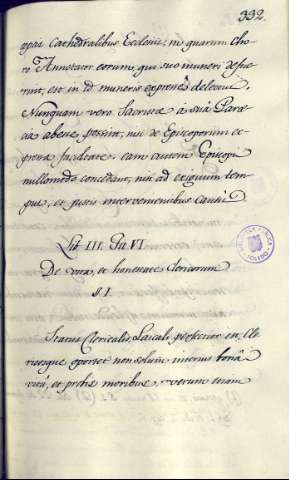 332.
opai Cathedralibus Ecclesiis; in quarum Cho-
ro Annotator eorum, qui suo muneri defue-
rint, est in id muneris expressè delectus.
Nunquam vero Sacristæ à suâ Parœ-
cia abesse possint, nisi de Episcoporum ex-
pressa facultate: eam autem Episcopi
nullomodo concedant, nisi ad exiguum tem-
pus, et justis intervenientibus causis
Lib. III. Tit. VI.
De vita, et honestate Clericorum
§. I.
Status Clericalis Laicali perfectior est, Cle-
ricosque oportet non solum interius bonâ
vitâ, et probis moribus, verum etiam
TOLEDO